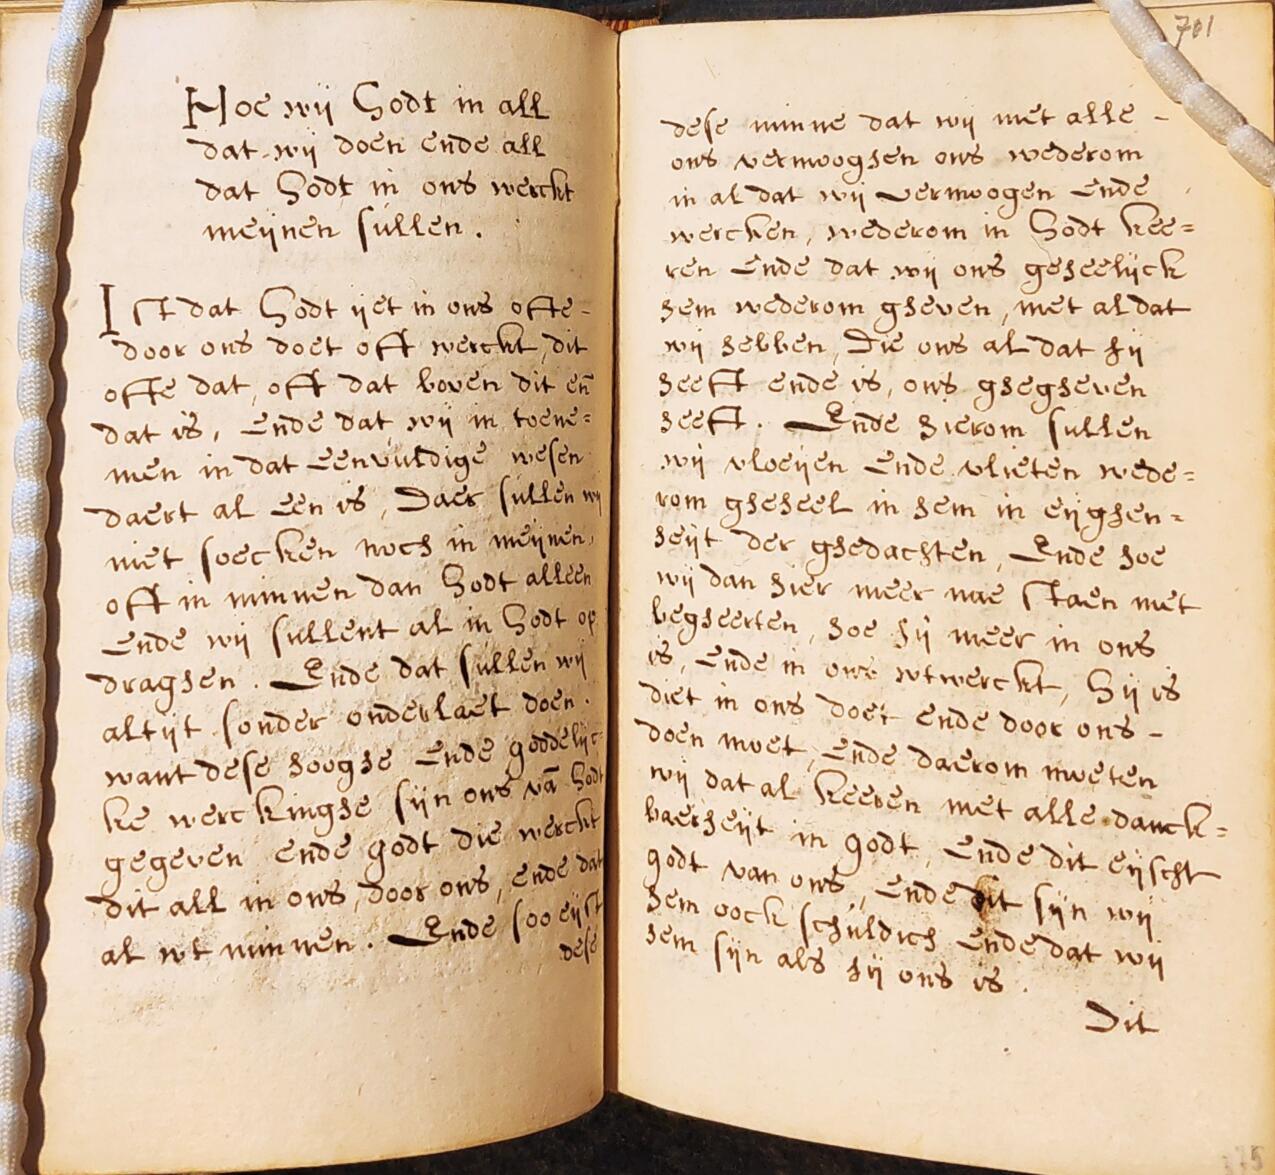 Hoe wij Godt in all
dat wij doen ende all
dat Godt in ons werckt
meijnen sullen.
Ist dat Godt ijet in ons ofte-
door ons doet oft werckt, dit
ofte dat, oft dat boven dit en̄
dat is, Ende dat wij in toene=
men in dat Eenvúldige wesen
daert al een is, Daer súllen wij
niet soecken noch in meijnen,
oft in minnen dan Godt alleen
Ende wij súllent al in Godt op
draghen. Ende dat súllen wij
altijt sonder onderlaet doen.
want dese hooghe Ende goddelijc=
ke werckinghe sijn ons vā Godt
gegeven ende godt die werckt
dit all in ons, door ons, ende dat
al wt minnen. Ende soo eijst
dese
701
dese minne dat wij met alle -
ons vermooghen ons wederom
in al dat wij vermoogen Ende
wercken, wederom in Godt kee=
ren Ende dat wij ons geheelijck
hem wederom gheven, met al dat
wij hebben, Die ons al dat hij
heeft ende is, ons ghegheven
heeft. Ende hierom sullen
wij vloeijen Ende vlieten wede=
rom gheheel in hem in eijghen=
heijt der ghedachten, Ende hoe
wij dan hier meer nae staen met
begheerten, hoe hij meer in ons
is, Ende in ons wtwerckt, Hij is
diet in ons doet ende door ons -
doen moet, Ende daerom moeten
wij dat al keeren met alle danck=
baerheijt in godt, Ende dit eijscht
godt van ons, Ende dit sijn wij
hem oock schúldich Ende dat wij
hem sijn als hij ons is.
Dit
175